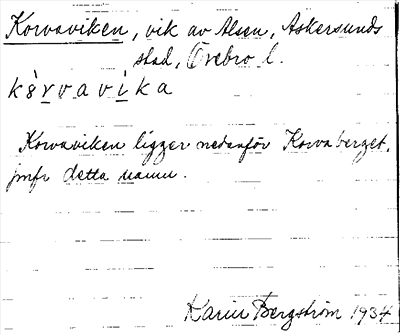 Korvaviken, vik av Alsen, Askersunds
stad, Örebro l.
kö̀rvavìka
Korvaviken ligger nedanför Korvaberget,
jmfr detta namn.
Karin Bergström 1934